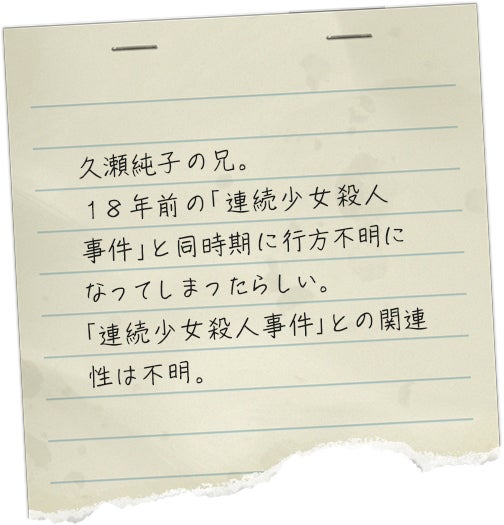 久瀬純子の兄。
18年前の「連続少女殺人
事件」と同時期に行方不明に
なってしまったらしい。
「連続少女殺人事件」との関連
性は不明。